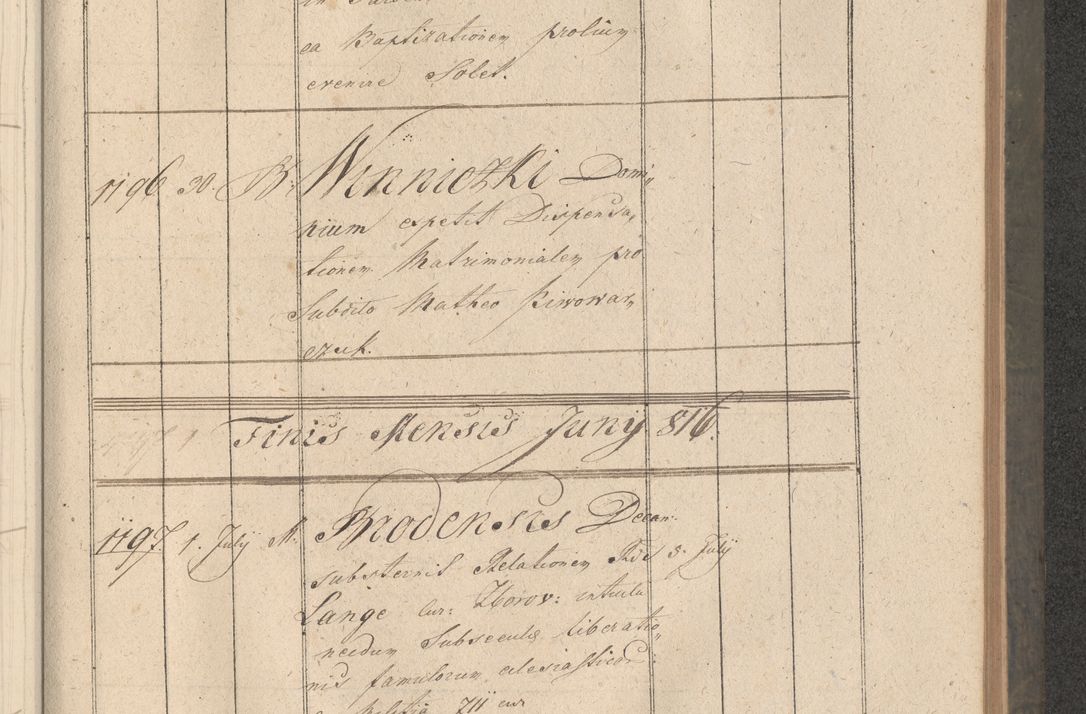 ea Baptizationem prolium
evenire Solet.
1196. 30. B: Winniczki Domi„
nium expetit Dispensa„
tionem Matrimonialem pro
Subdito Matheo Piwowar„
czuk.
Finis Mensis Junÿ 816.
1197. 1. July M. Brodensis Decan:
substernit Relationem Rdi 3. July
Lange Cur: Zborov: intuitu
necdum Subsecutæ liberatio„
nis famulorum eclesiasticor: